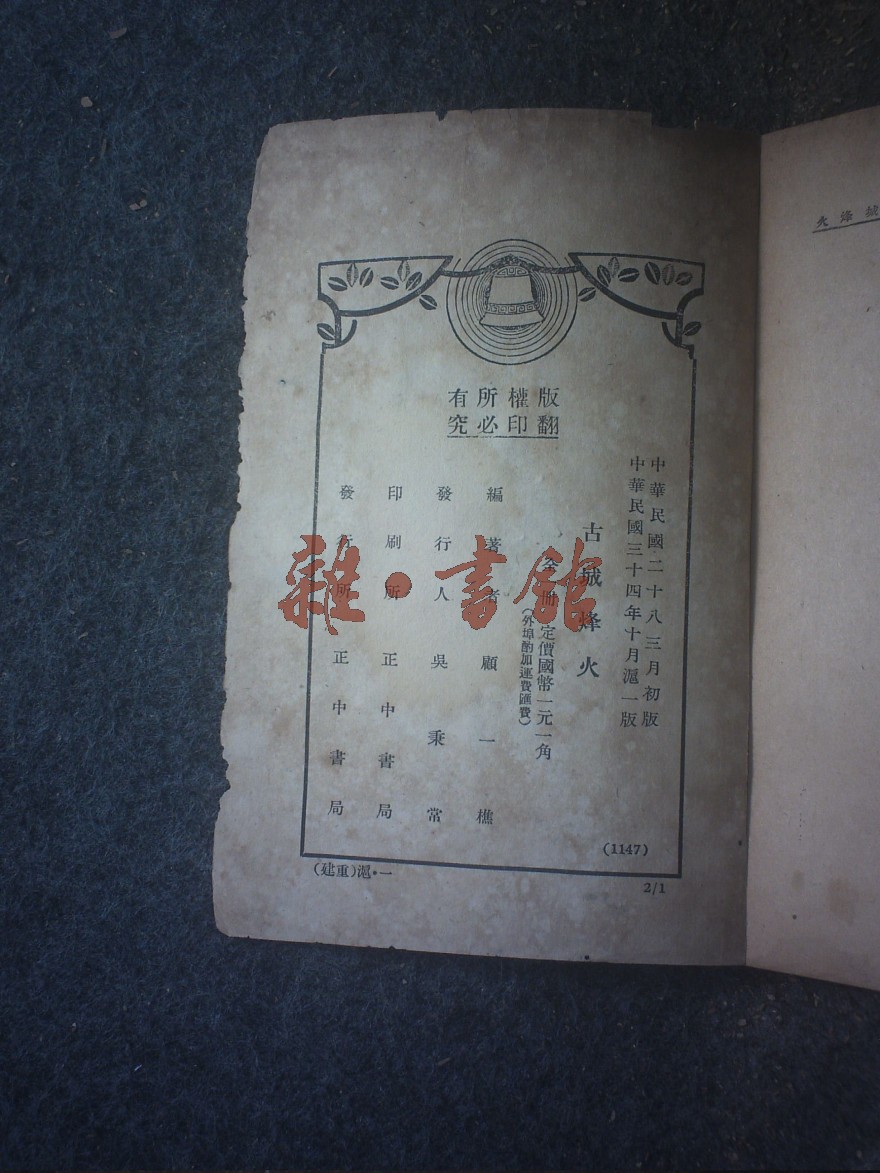 版權所有
翻印必究
中華民國二十八三月初版
中華民國三十四年十月滬一版
古城烽火
全一冊定價國幣一元一角
(外埠酌加運費匯費)
編著者顧一樵
發行人吳秉常
印刷所正中書局
發行所正中書局
(1147)
(建重)滬•一
2/1
雜•書館
城烽火